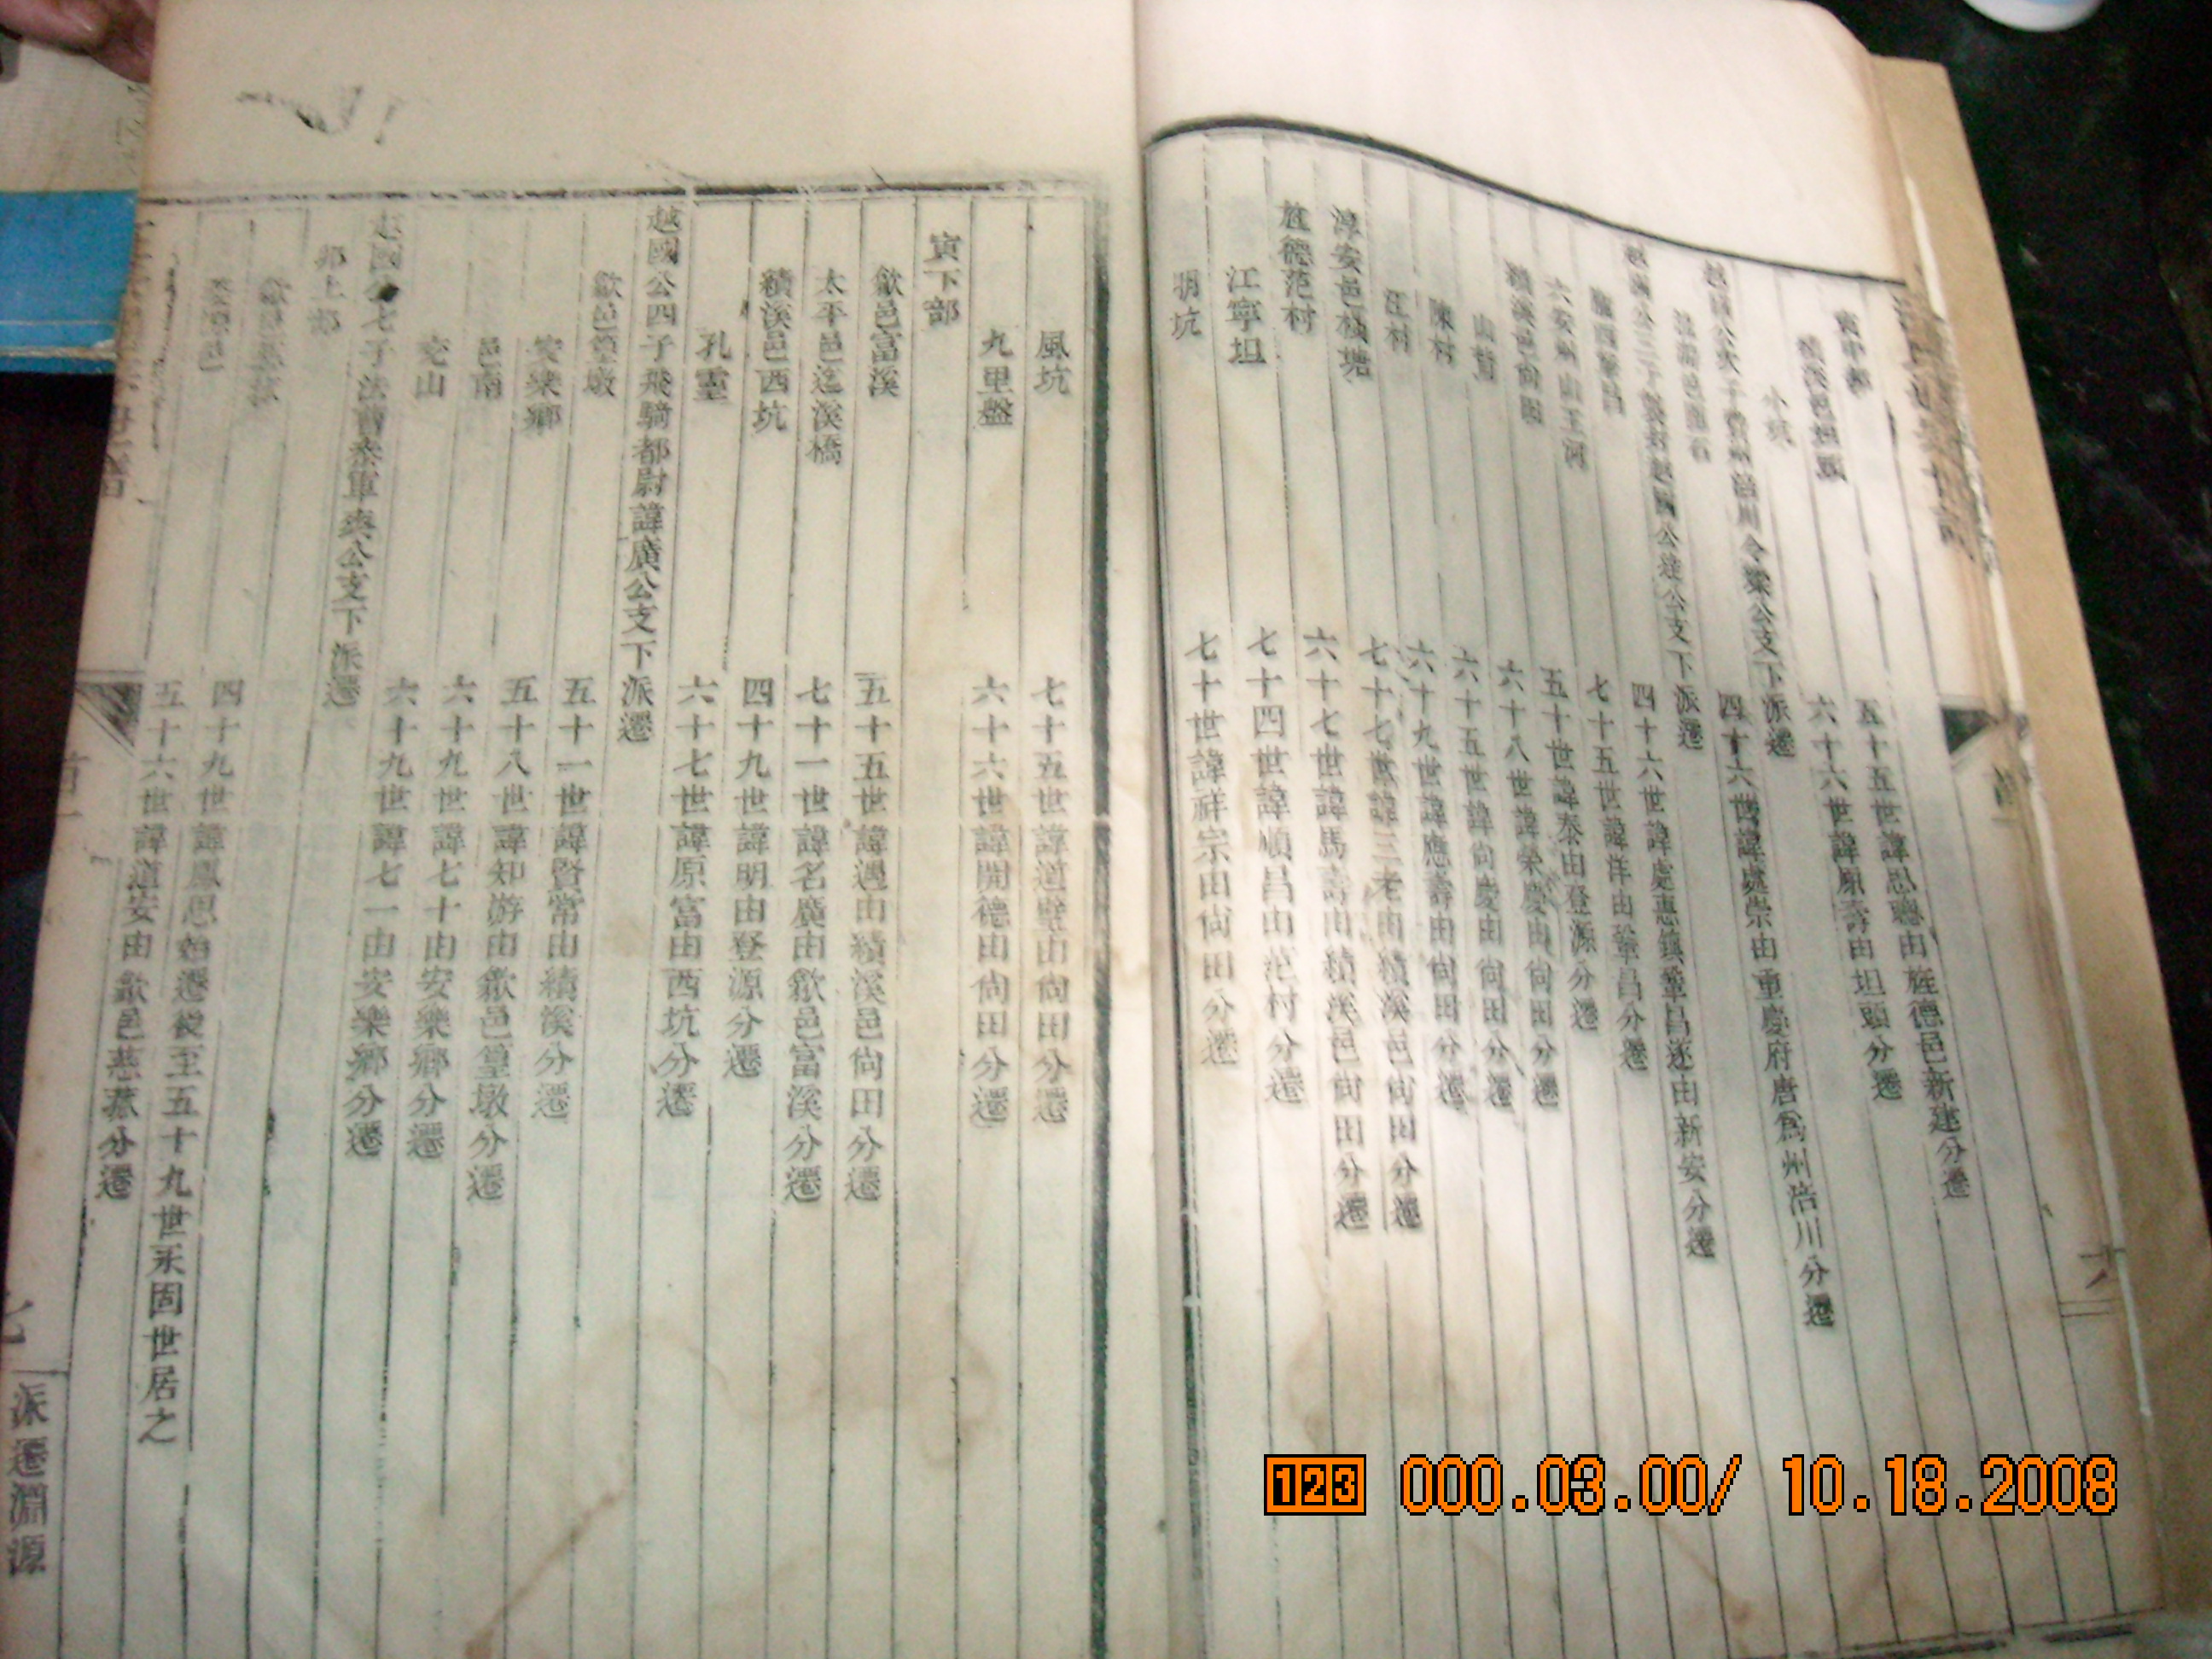 寅中部
績溪邑坦頭 五十五世諱思聰由旌德邑新建分遷
小坑 六十六世諱原壽由坦頭分遷
越國公次子 州涪川令粲公支下派遷
四十六世諱處崇由重慶府唐為州涪川分遷
越國公三子襲封越國公達公支下派遷
四十六世諱處惠鎮鞏昌遂由新安分遷
鞏昌 七十五世諱洋由鞏昌分遷
六安州山王河 五十世諱泰由登源分遷
績溪邑尚田 六十八世諱榮慶由尚田分遷
六十五世諱尚慶由尚田分遷
陳村 六十九世諱應壽由尚田分遷
汪村 七十七世諱三老由績溪邑尚田分遷
淳安邑 塘 六十七世諱馬壽由績溪邑尚田分遷
旌德范村
江寧坦 七十四世諱順昌由范村分遷
明坑 七十世諱祥宗由尚田分遷
風坑 七十五世諱道 由尚田分遷
九里盤 六十六世諱開德由尚田分遷
寅下部
歙邑富溪 五十五世諱遇由績溪邑尚田分遷
太平邑 溪橋 七十一世諱名廣由歙邑富溪分遷
績溪邑西坑 四十九世諱明由登源分遷
孔靈 六十七世諱原富由西坑分遷
越國公四子飛騎都尉諱廣公支下派遷
歙邑篁墩 五十一世諱賢常由績溪分遷
安樂鄉 五十八世諱知游由歙邑篁墩分遷
邑南 六十九世諱七十由安樂鄉分遷
山 六十九世諱七一由安樂鄉分遷
越國公七子法曹參軍爽公支下派遷
卯上部
歙邑慈菰 四十九世諱鳳思始遷後至五十九世永固世居之
五十六世諱道安由歙邑慈菰分遷
七
派遷淵源
123 000.03.00/ 10.18.2008